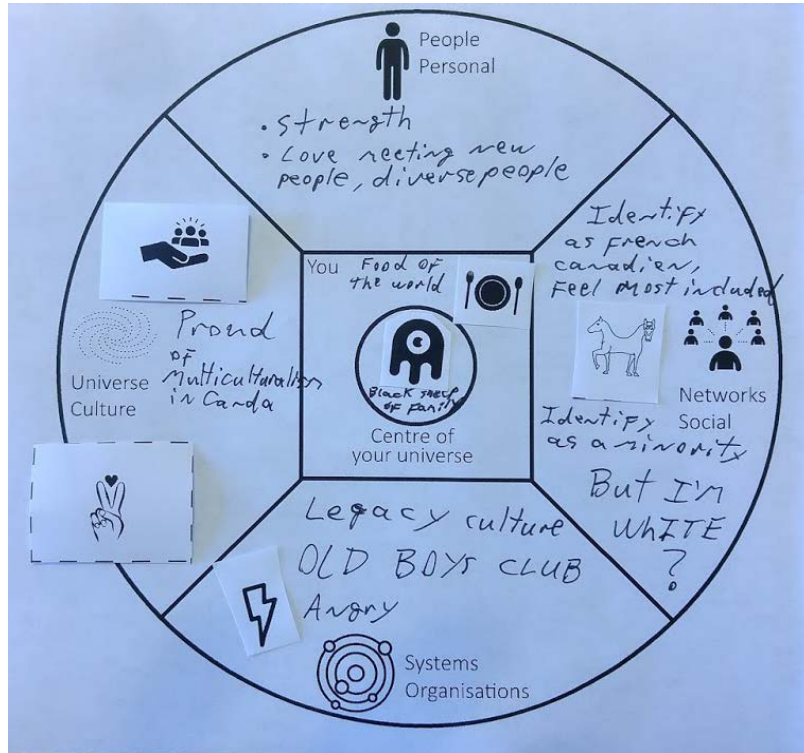 People
Personal
• Strength
• Love meeting new
people, diverse people
Identify
as french
canadien,
Feel most included
Networks
Social
Identify
as a minority
But I'm
WHITE
?
You
Food of
the world
Black sheep
of family
Centre of
your universe
Proud
of
Multiculturalism
in Canda
Universe
Culture
Legacy culture
OLD BOYS CLUB
Angry
Systems
Organisations